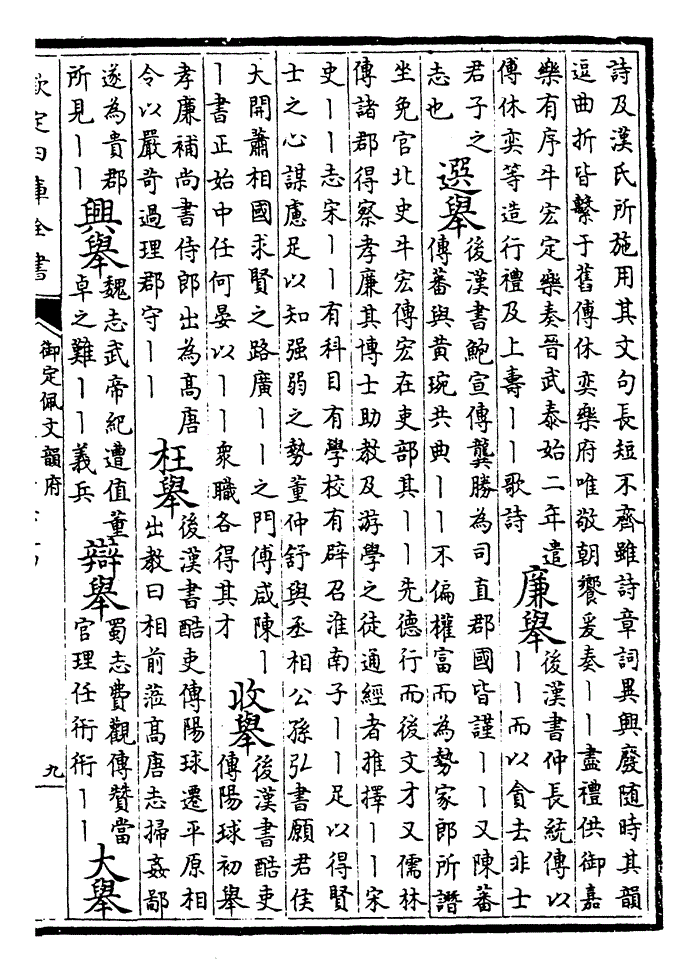 詩及漢氏所施用其文句長短不齊雖詩章詞異興廢随時其韻
逗曲折皆繫于舊傅休奕樂府唯敬朝饗爰奏丨丨盡禮供御嘉
樂有序牛宏定樂奏晉武泰始二年遣
傅休奕等造行禮及上壽丨丨歌詩
廉舉
後漢書仲長統傳以
丨丨而以貪去非士
君子之
志也
選舉
後漢書鮑宣傳龔勝為司直郡國皆謹丨丨又陳蕃
傳蕃與黄琬共典丨丨不偏權富而為勢家郎所譖
坐免官北史牛宏傳宏在吏部其丨丨先德行而後文才又儒林
傳諸郡得察孝廉其博士助教及游學之徒通經者推擇丨丨宋
史丨丨志宋丨丨有科目有學校有辟召淮南子丨丨足以得賢
士之心謀慮足以知强弱之勢董仲舒與丞相公孫弘書願君侯
大開蕭相國求賢之路廣丨丨之門傅咸陳丨
丨書正始中任何晏以丨丨衆職各得其才
收舉
後漢書酷吏
傳陽球初舉
孝廉補尚書侍郎出為髙唐
令以嚴苛過理郡守丨丨
枉舉
後漢書酷吏傳陽球遷平原相
出教曰相前蒞髙唐志掃姦鄙
遂為貴郡
所見丨丨
興舉
魏志武帝紀遭值董
卓之難丨丨義兵
辯舉
蜀志費觀傳贊當
官理任衎衎丨丨
大舉
欽定四庫全書
御定佩文韻府
九